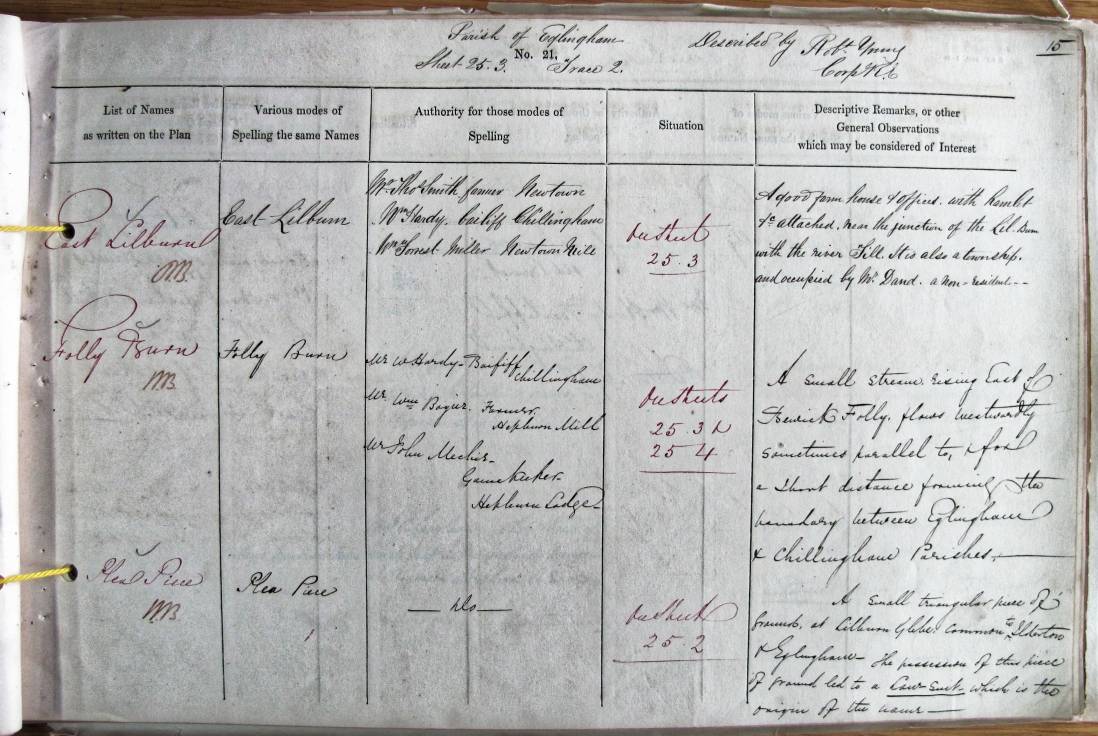 Parish of Eglingham
Described by Robt. Young
Corpl R.E
15
No. 21,
Sheet 25.3. Trace 2.
List of Names
as written on the Plan
Various modes of
Spelling the same Names
Authority for those modes of
Spelling
Situation
Descriptive Remarks, or other
General Observations
which may be considered of Interest
East Lilburn
East Lilburn
Mr. Thos Smith farmer Newtown
Wm Hardy. bailiff Chillingham
Wm Forrest Miller Newtown Mill
On Sheet
25.3
A good farm house & offices. with hamlet
&c attached, near the junction of the Lil. Burn
with the river Till. It is also a township.
and occupied by Mr. Dand. a non-resident--
Folly Burn
Folly Burn
Mr W Hardy - Bailiff
Chillingham
Mr. Wm Farmer
Hepburn Mill
Mr John
Game Keeper
Hepburn Lodge
On Sheets
25.3 &
25 4
A small stream rising East of
Bewick Folly. flows westwardly
sometimes parallel to, & for
a short distance forming the
boundary between Eglingham
& Chillingham Parishes.
Plea Piece
Plea Piece
— Do —
On Sheet
25.2
A small triangular piece of
ground, at Lilburn Glebe. common to Ilderton
& Eglingham - the possession of this piece
of ground led to a Law-suit - which is the
origin of the name —